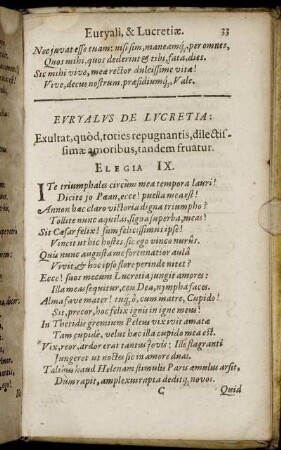 Euryali, & Lucretiæ. 33
Nec juvat esse tuam: nisi sim, maneamq́, per omnes,
Quos mihi, quos dederint & tibi, fata, dies.
Sic mihi vive, mea rector dulcissime vitæ!
Vive, decus nostrum, præsidiumq́, Vale.
EURYALUS DE LUCRETIA:
Exultat, quòd, toties repugnantis, dilectis-
simæ amoribus, tandem fruatur.
ELEGIA IX.
ITe triumphales circùm mea tempora lauri!
Dicite jo Pæan, ecce! puella mea est!
Annon hæc claro victoria digna triumpho?
Tollite nunc aquilas, signa superba, meas!
Sit Cæsar felix! sum felicissimus ipse!
Vincit ut hic hostes, sic ego vinco nurus.
Quis nunc augusta me fortunatior aulâ
Vivit, & hoc ipso flore perinde nitet?
Ecce! suos mecum Lucretia jungit amores:
Illa meas equitur, ceu Dea, nympha faces.
Alma fave mater! tuq́, ô, cum matre, Cupido!
Sit, precor, hoc felix ignis in igne meus!
In Thetidis gremium Peleus vix ivit amatæ
Tam cupidè, velut hæc illa cupido mea est.
Vix, reor, ardor erat tantus Jovis: Ille flagranti
Jungeret ut noctes sic in amore duas.
Talibus haud Helenam stimulis Paris æmulus arsit,
Dum rapit, amplexus rapta deditq́, novos.
C Quid